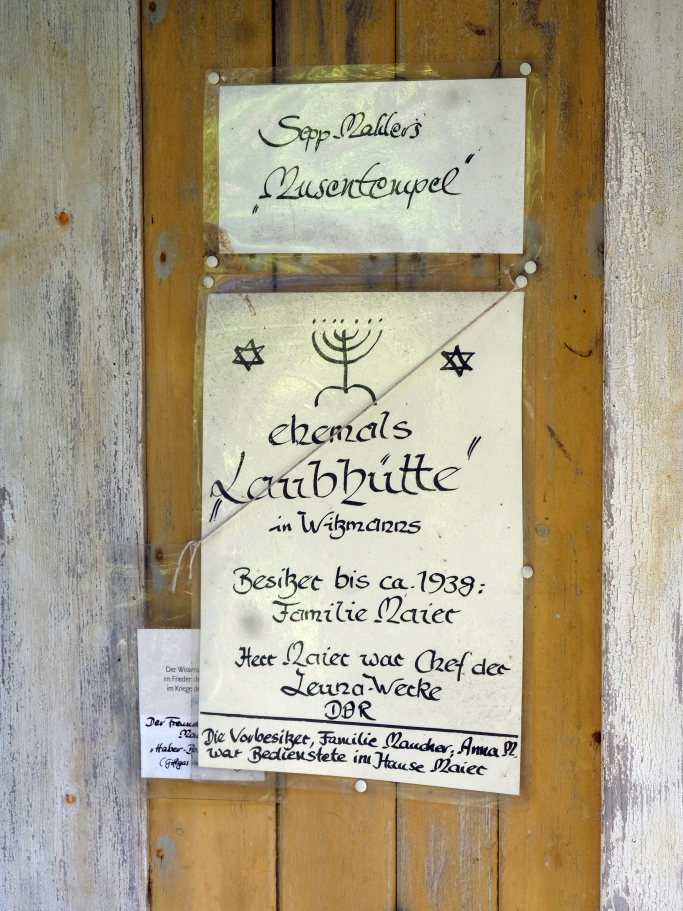 Sepp Mahler's
„Musentempel"
ehemals
„Laubhütte"
in Witzmanns
Besitzer bis ca. 1938:
Familie Maier
Herr Maier war Chef der
Leuna-Werke
DDR
Die Vorbesitzer, Familie Maucher, Anna M.
war Bedienstete im Hause Maier
Der Wissens
im Frieden de
im Kriege d
Der Freund
Ma
„Haber-Bo
(Giftgas